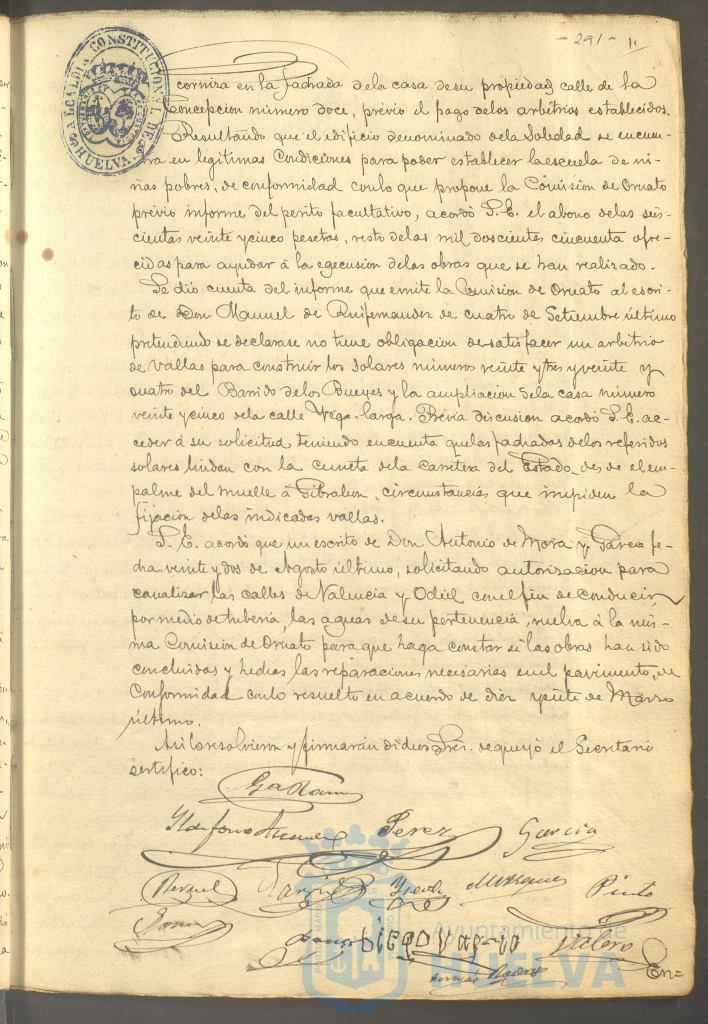 -291-
ALCALDIA CONSTITUCIONAL DE HUELVA
cornisa en la fachada de la casa de su propiedad calle de la
Concepcion número doce, prévio el pago delos arbitrios establecidos.
Resultando que el edificio denominado dela Soledad se encuen-
tra en legítimas Condiciones para poder establecer la escuela de ni-
ñas pobres, de conformidad conlo que propone la Comision de Ornato
prévio informe del perito facultativo, acordó S.E. el abono delas seis-
cientas veinte y cinco pesetas, resto delas mil doscientas cincuenta ofre-
cidas para ayudar á la egecusión delas obras que se han realizado.
Se dió cuenta del informe que emite la Comision de Ornato al escri-
to de Don Manuel de Ruifernandez de cuatro de Setiembre último
pretendiendo se declarase no tiene obligacion de satisfacer un arbitrio
de vallas para construir los solares números veinte y tres y veinte y
cuatro del Barrido delos Bueyes y la ampliacion dela casa número
veinte y cinco dela calle Vega-larga. Prévia discusion acordó S.E. ac-
ceder á su solicitud teniendo encuenta quelas fachadas delos referidos
solares lindan con la cuneta dela carretera del Estado desde el em-
palme del muelle á Gibraleon, circunstancias que impiden la
fijación delas indicadas vallas.
S.E. acordó que un escrito de Don Antonio de Mora y Garcia fe-
cha veinte y dos de Agosto último, solicitando autorizacion para
canalizar las calles de Valencia y Odiel conel fin de conducir,
por medio de tubería, las aguas de su pertenencia, vuelva á la mis-
ma Comision de Ornato para que haga constar si las obras han sido
concluidas y hechas las reparaciones necesarias enel pavimento, de
Conformidad conlo resuelto en acuerdo de diez y siete de Marzo
último.
Asi lo resolvieron y firmarán dichos Sres. de que yó el Secretario
certifico:
Ildefonso
Perez
García
Pinto
Diego
Valero
En=
Ayuntamiento de
HUELVA